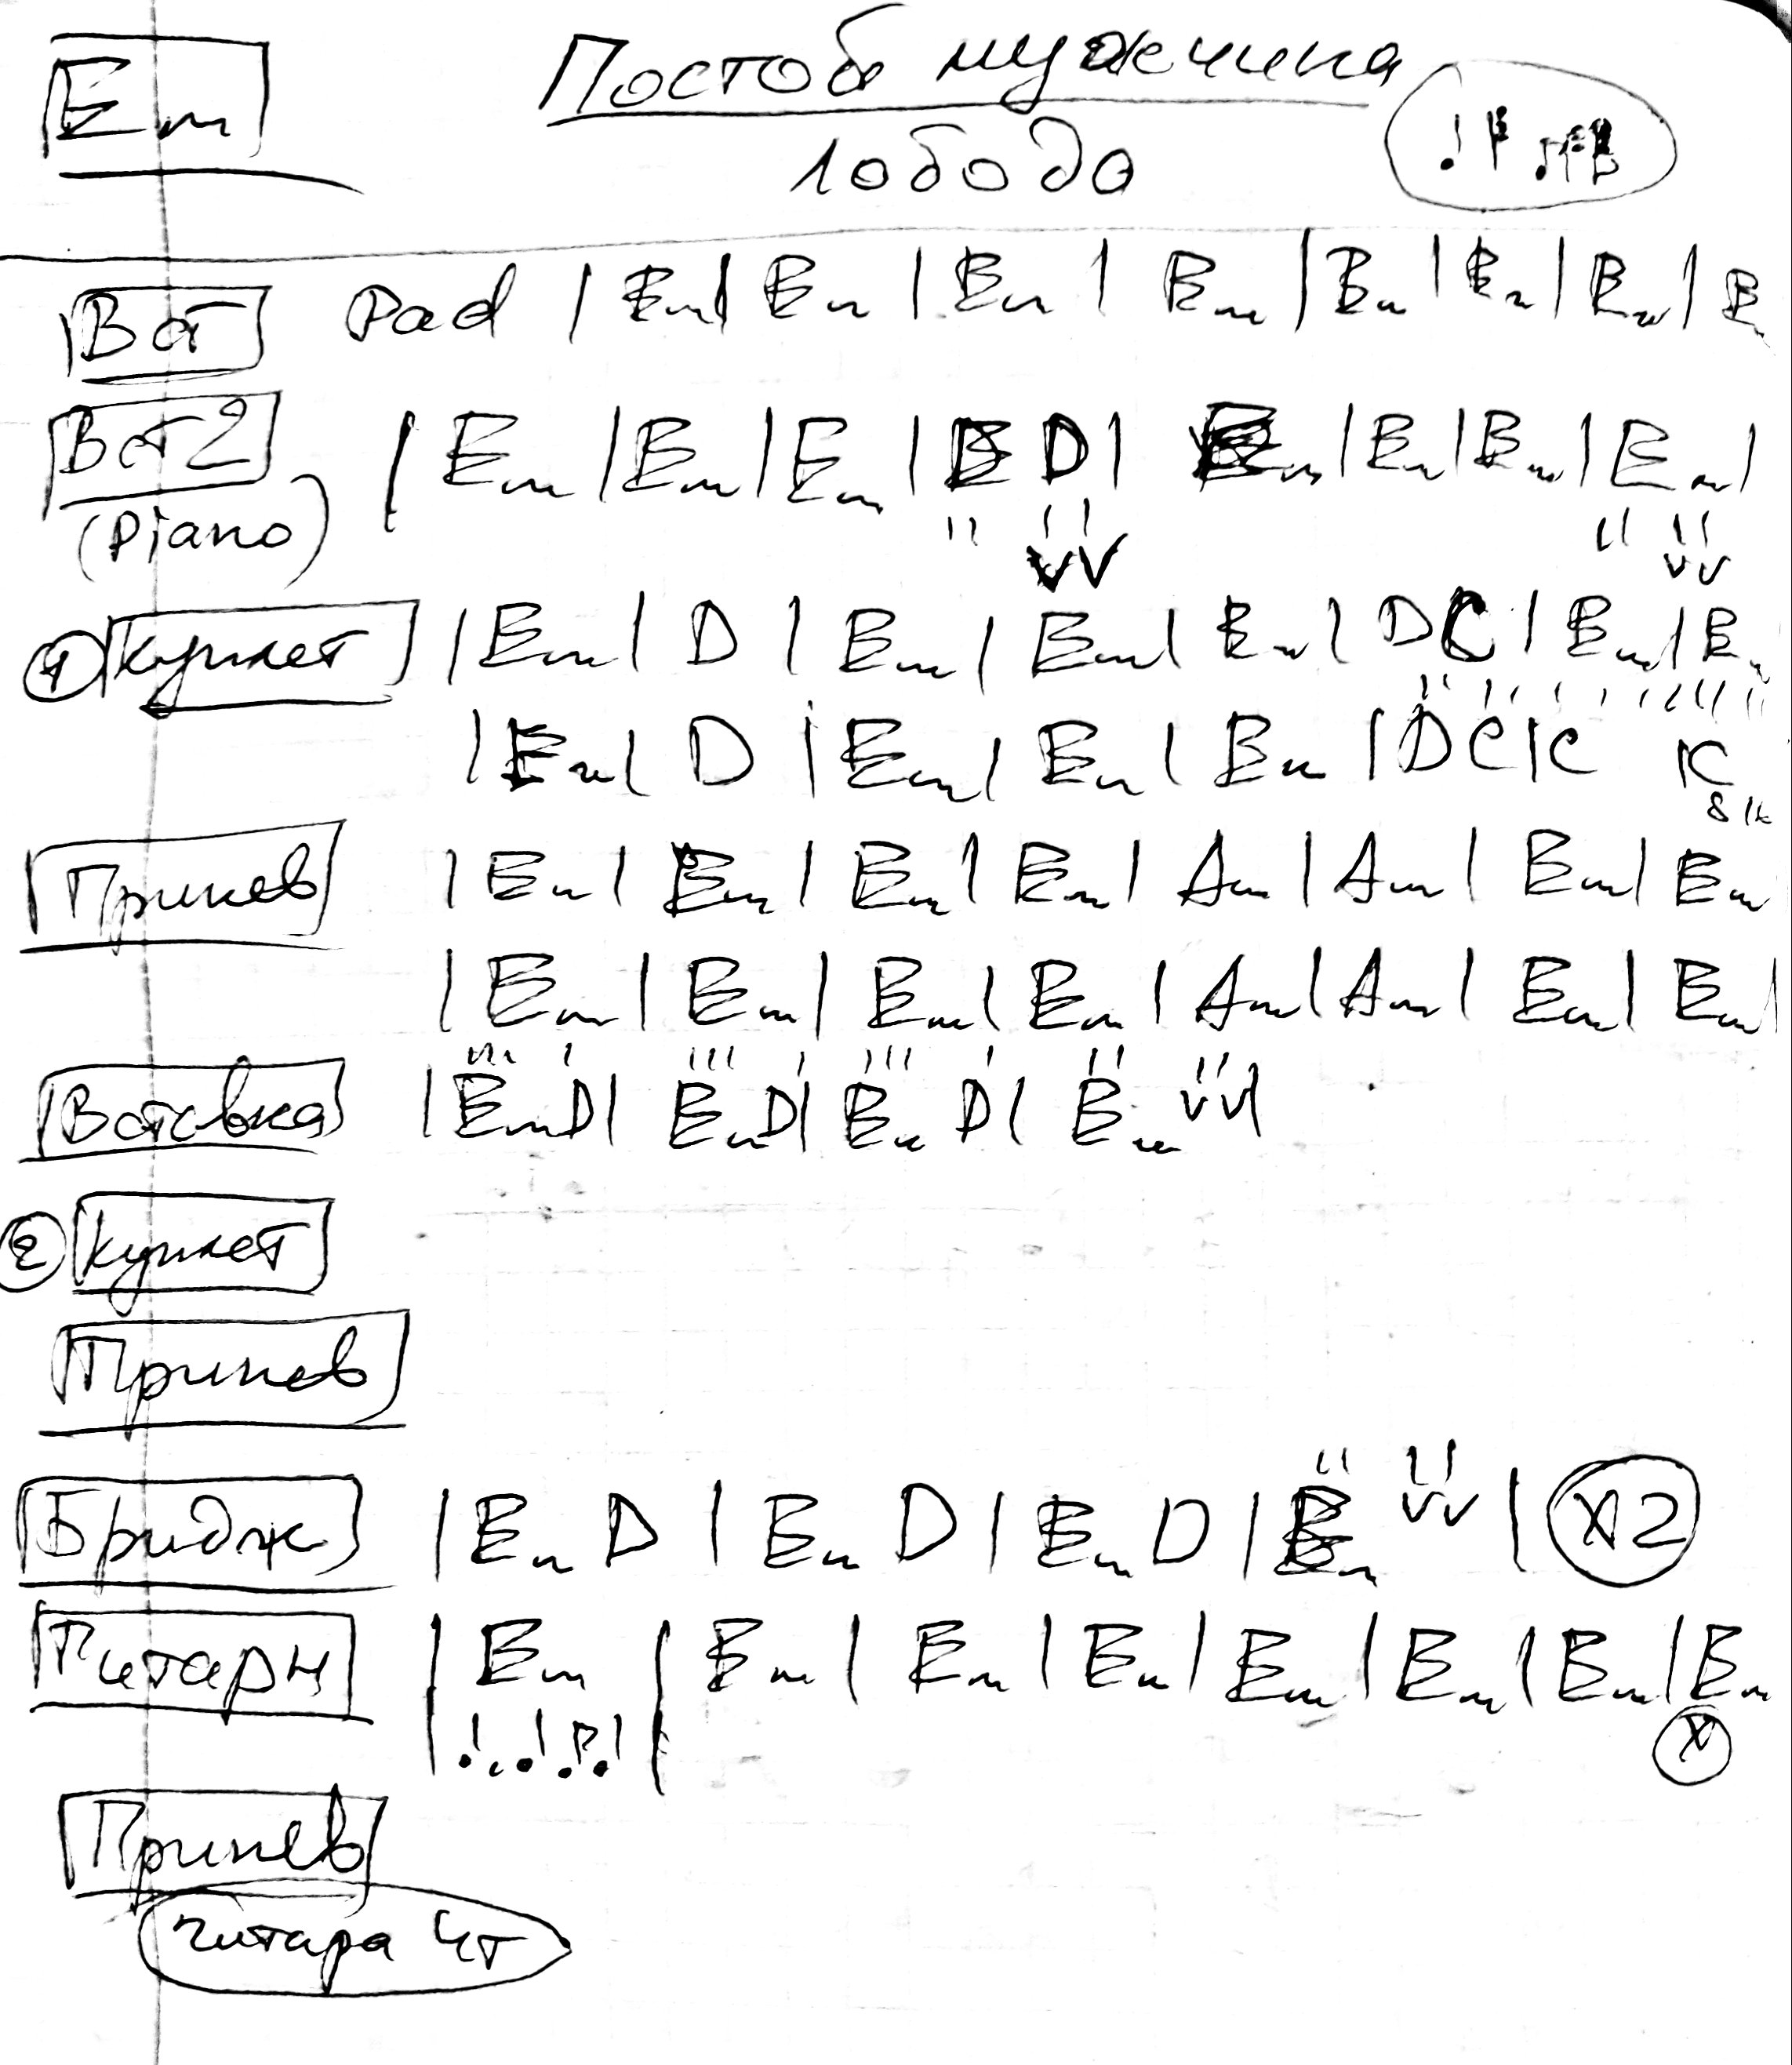 Em Постой мужчина
лобода
Вст Pad | Em | Em | Em | Em | Em | Em | Em | E
Вст 2 | Em | Em | Em | E D | Em | Em | Em | Em |
(Piano) VV VV
① Куплет | Em | D | Em | Em | Em | D C | Em | Em
| Em | D | Em | Em | Em | D C | C | C
Припев | Em | Em | Em | Em | Am | Am | Em | Em
| Em | Em | Em | Em | Am | Am | Em | Em |
Вставка | Em D | Em D | Em D | Em VV |
② Куплет
Припев
Бридж | Em D | Em D | Em D | Em VV | X2
Гитары | Em | Em | Em | Em | Em | Em | Em | Em
X
Припев
гитара 4т